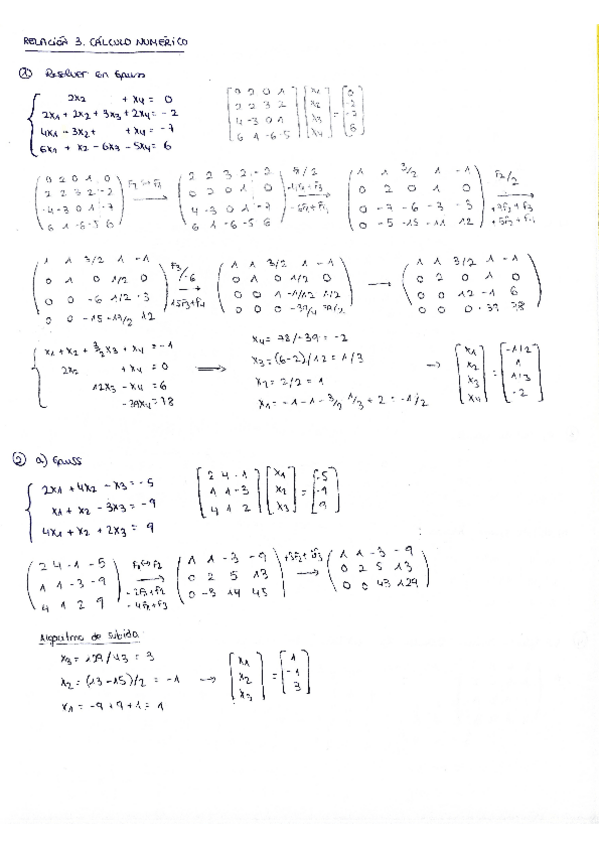 RELACIÓN 3. CÁLCULO NUMÉRICO
① Resolver en Gauss
2x2 + x4 = 0
2x1 + 2x2 + 3x3 + 2x4 = -2
4x1 - 3x2 + + x4 = -7
6x1 + x2 - 6x3 - 5x4 = 6
0 2 0 1 x1 0
2 2 3 2 x2 -2
4 -3 0 1 x3
6 1 -6 -5 x4 6
0 2 0 1 0
2 2 3 2 -2
4 -3 0 1 -7
6 1 -6 -5 6
2 2 3 2 -2
0 2 0 1 0
4 -3 0 1 -7
6 1 -6 -5 6
1 1 3/2 1 -1
0 2 0 1 0
0 -7 -6 -3 -3
0 -5 -15 -11 12
F2/2
+7F2+F3
+5F2+F4
1 1 3/2 1 -1
0 1 0 1/2 0
0 0 -6 1/2 -3
0 0 -15 -17/2 12
F3/-6
15F3+F4
1 1 3/2 1 -1
0 1 0 1/2 0
0 0 1 -1/12 1/2
0 0 0 -39/4 39/2
1 1 3/2 1 -1
0 2 0 1 0
0 0 12 -1 6
0 0 0 -39 78
x1 + x2 + 3/2 x3 + x4 = -1
2x2 + x4 = 0
12x3 - x4 = 6
-39x4 = 78
x4 = 78/-39 = -2
x3 = (6-2)/12 = 1/3
x2 = 2/2 = 1
x1 = -1 -1 -3/2 1/3 + 2 = -1/2
x1 -1/2
x2 = 1
x3 1/3
x4 -2
② a) Gauss
2x1 + 4x2 - x3 = -5
x1 + x2 - 3x3 = -9
4x1 + x2 + 2x3 = 9
2 4 -1 x1 -5
1 1 -3 x2 = -9
4 1 2 x3 9
2 4 -1 -5
1 1 -3 -9
4 1 2 9
F1↔F2
-2F1+F2
-4F1+F3
1 1 -3 -9
0 2 5 13
0 -3 14 45
+3F2+2F3
1 1 -3 -9
0 2 5 13
0 0 43 129
Algoritmo de subida
x3 = 129/43 = 3
x2 = (13-15)/2 = -1
x1 = -9+9+1 = 1
x1 1
x2 = -1
x3 3